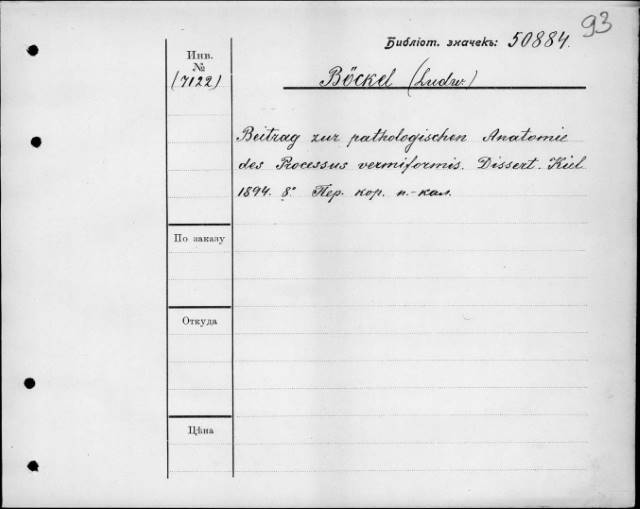 93
Библіот. значекъ: 50884.
Инв.
№
(7122)
Böckel (Ludw.)
Beitrag zur pathologischen Anatomie
des Processus vermiformis. Dissert. Kiel
1894. 8° Пер. кор. п.-кал.
По заказу
Откуда
Цѣна